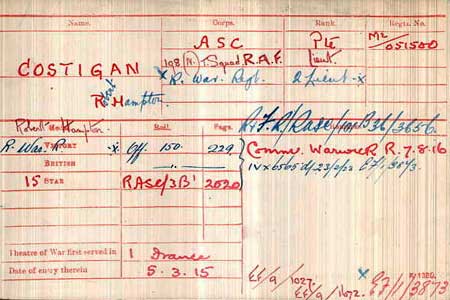 Name. Corps. Rank. Regtl. No.
ASC Pte M2/051500
COSTIGAN 198 (N) T. Squad R.A.F. Lieut.
x R. War. Regt. 2 Lieut -x
Robert Hampton
Robert Mc Hampton. Roll. Page.
R. War. R. VICTORY -x Off. 150. 229 Comm. Warwick R. 7.8.16
BRITISH -"- IV x 6565 d/
15 STAR RASC/3B' 2020
Theatre of War first served in 1 France
Date of entry therein 5.3.15
EE/9/1027
EE/9/1072. x E7/1/3873
K 1380